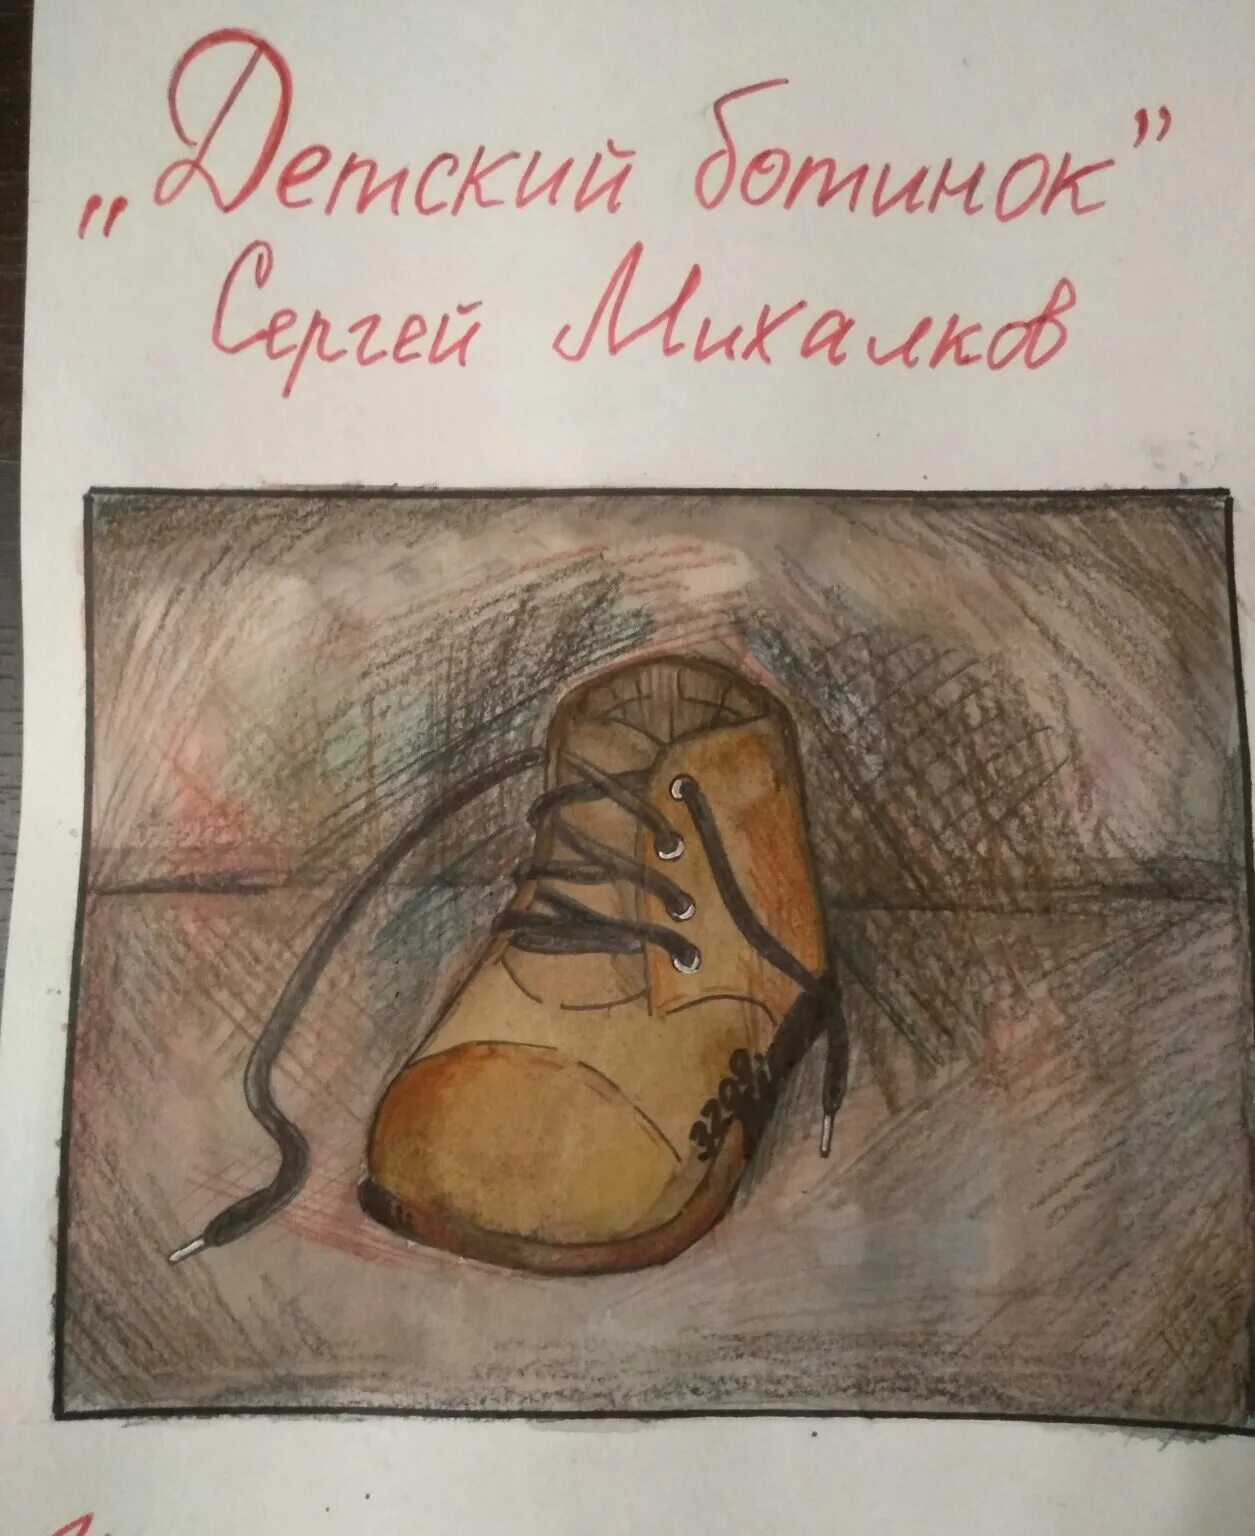 „Детский ботинок”
Сергей Михалков
3209